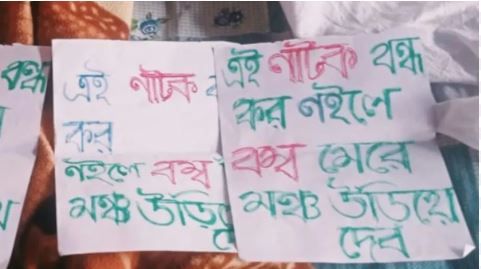 বন্ধ
এই নাটক
কর
নইলে বম্ব
মঞ্চ উড়িয়ে
এই নাটক বন্ধ
কর নইলে
বম্ব মেরে
মঞ্চ উড়িয়ে
দেব